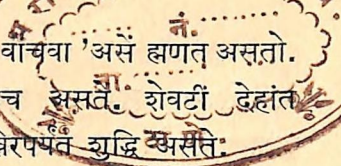 नं.
वांचवा 'असें ह्मणत असतो.
ता.
च असतें. शेवटीं देहांत
शुद्धि असते.